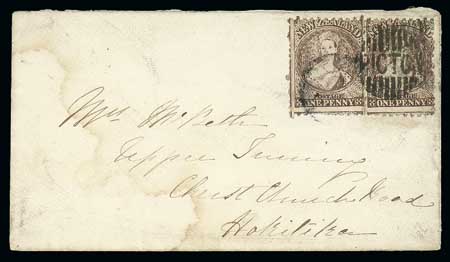 NEW ZEALAND
POSTAGE
ONE PENNY
NEW ZEALAND
PICTON
POSTAGE
ONE PENNY
Mrs McBeth
Upper Turning
Christ Church Road
Hokitika